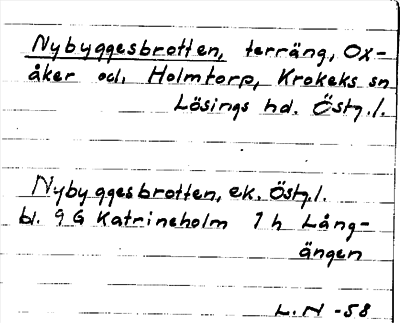 Nybyggesbrotten, terräng, Ox-
åker och Holmtorp, Krokeks sn
Lösings hd. Östg.l.
Nybyggesbrotten, ek. Östg.l.
bl. 9 G Katrineholm 1 h Lång-
ängen
L.N -58